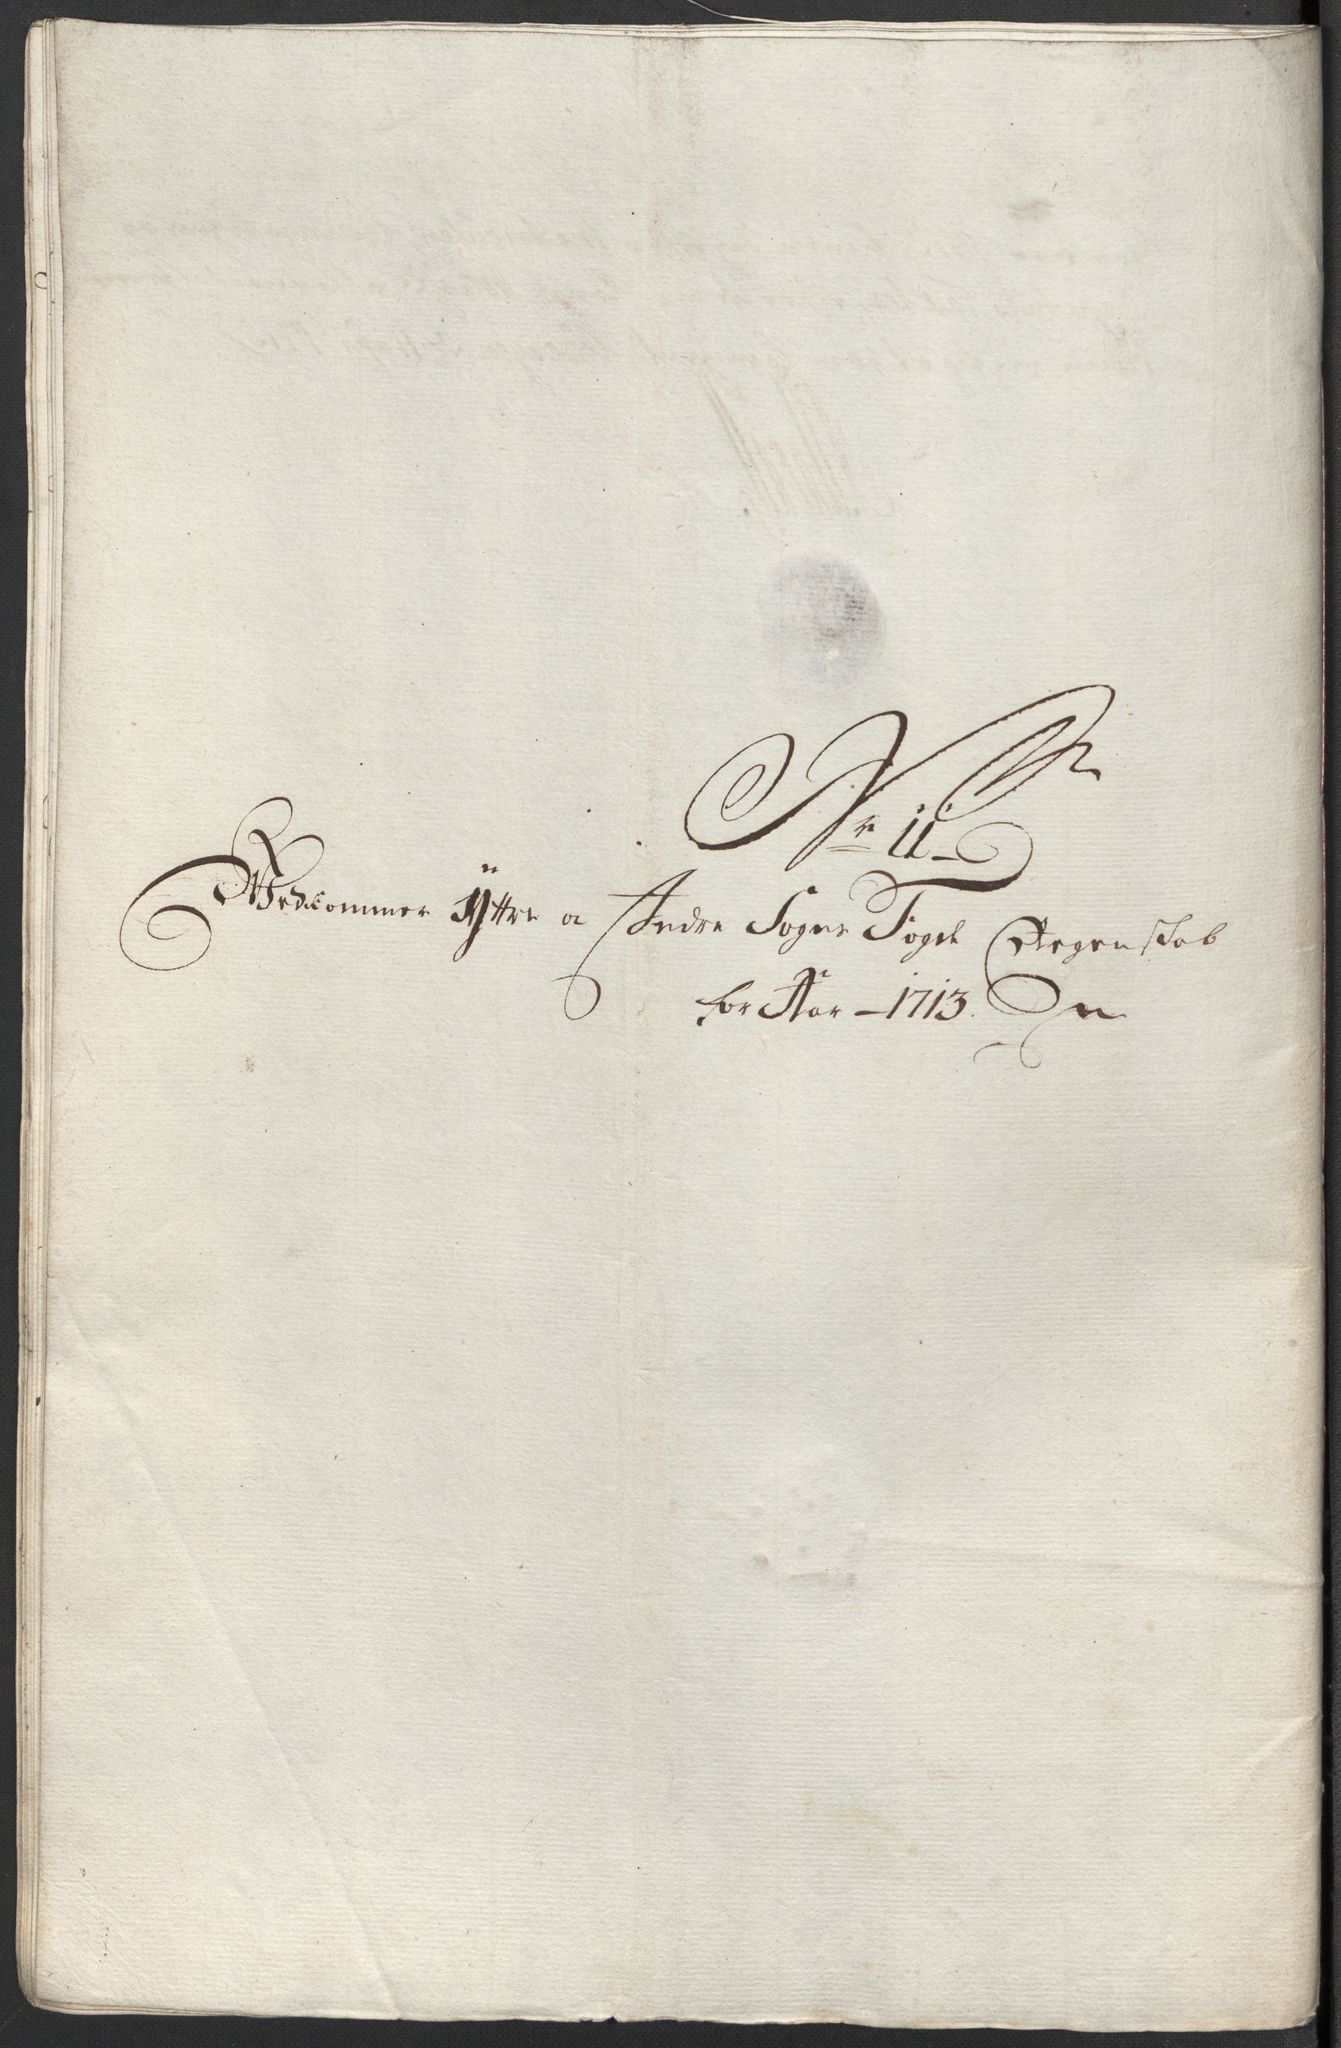 No 11
Vedkommer Yttre oc Indre Sogns Fogde Regenskab
for Aar 1713